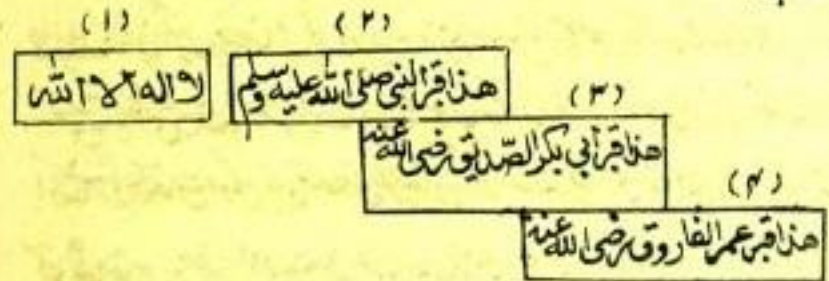 (۱)
لا اله الا الله
(۲)
هذا قبر النبي صلى الله عليه وسلم
(۳)
هذا قبر أبي بكر الصّديق رضى الله عنه
(۴)
هذا قبر عمر الفاروق رضى الله عنه